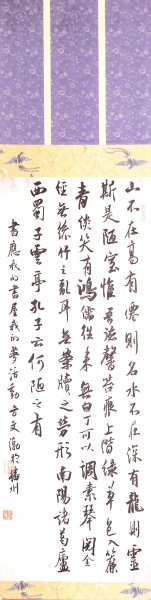 山不在高有僊則名水不在深有龍則靈
斯是陋室惟吾德馨苔痕上階綠草色入簾
青談笑有鴻儒往來無白丁可以調素琴閱金
經無絲竹之亂耳無案牘之勞形南陽諸葛廬
西蜀子雲亭孔子云何陋之有
書應我的書屋我的夢活動方文於揚州